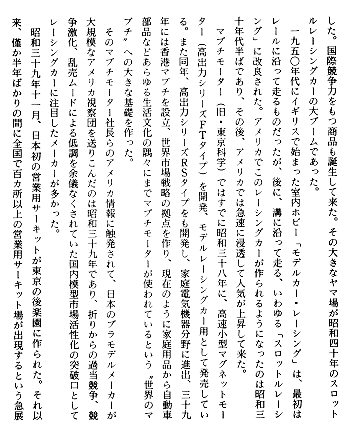 した。国際競争力をもつ商品も誕生して来た。その大きなヤマ場が昭和四十年のスロット
ルレーシングカーの大ブームであった。
一九五〇年代にイギリスで始まった室内ホビー「モデルカー・レーシング」は、最初は
レールに沿って走るものだったが、後に、溝に沿って走る、いわゆる「スロットルレーシ
ング」に改良された。アメリカでこのレーシングカーが作られるようになったのは昭和三
十年代半ばであり、その後、アメリカでは急速に浸透して人気が上昇して来た。
マブチモーター（旧・東京科学）ではすでに昭和三十八年に、高速小型マグネットモー
ター（高出力シリーズFTタイプ）を開発、モデルレーシングカー用として発売してい
る。また同年、高出力シリーズRSタイプをも開発し、家庭電気機器分野に進出、三十九
年には香港マブチを設立、世界市場戦略の拠点を作り、現在のように家庭用品から自動車
部品などあらゆる生活文化の隅々にまでマブチモーターが使われているという〝世界のマ
ブチ〟への大きな基礎を作った。
そのマブチモーター社長らのアメリカ情報に触発されて、日本のプラモデルメーカーが
大規模なアメリカ視察団を送りこんだのは昭和三十九年であり、折りからの過当競争、競
争激化、乱売ムードによる低調を余儀なくされていた国内模型市場活性化の突破口として
レーシングカーに注目したメーカーが多かった。
昭和三十九年十一月、日本初の営業用サーキットが東京の後楽園に作られた。それ以
来、僅か半年ばかりの間に全国で百カ所以上の営業用サーキット場が出現するという急展